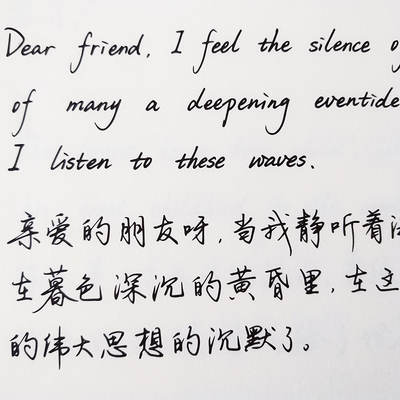 Dear friend, I feel the silence
of many a deepening eventide
I listen to these waves.
亲爱的朋友呀,当我静听着
在暮色深沉的黄昏里,在这
的伟大思想的沉默了。